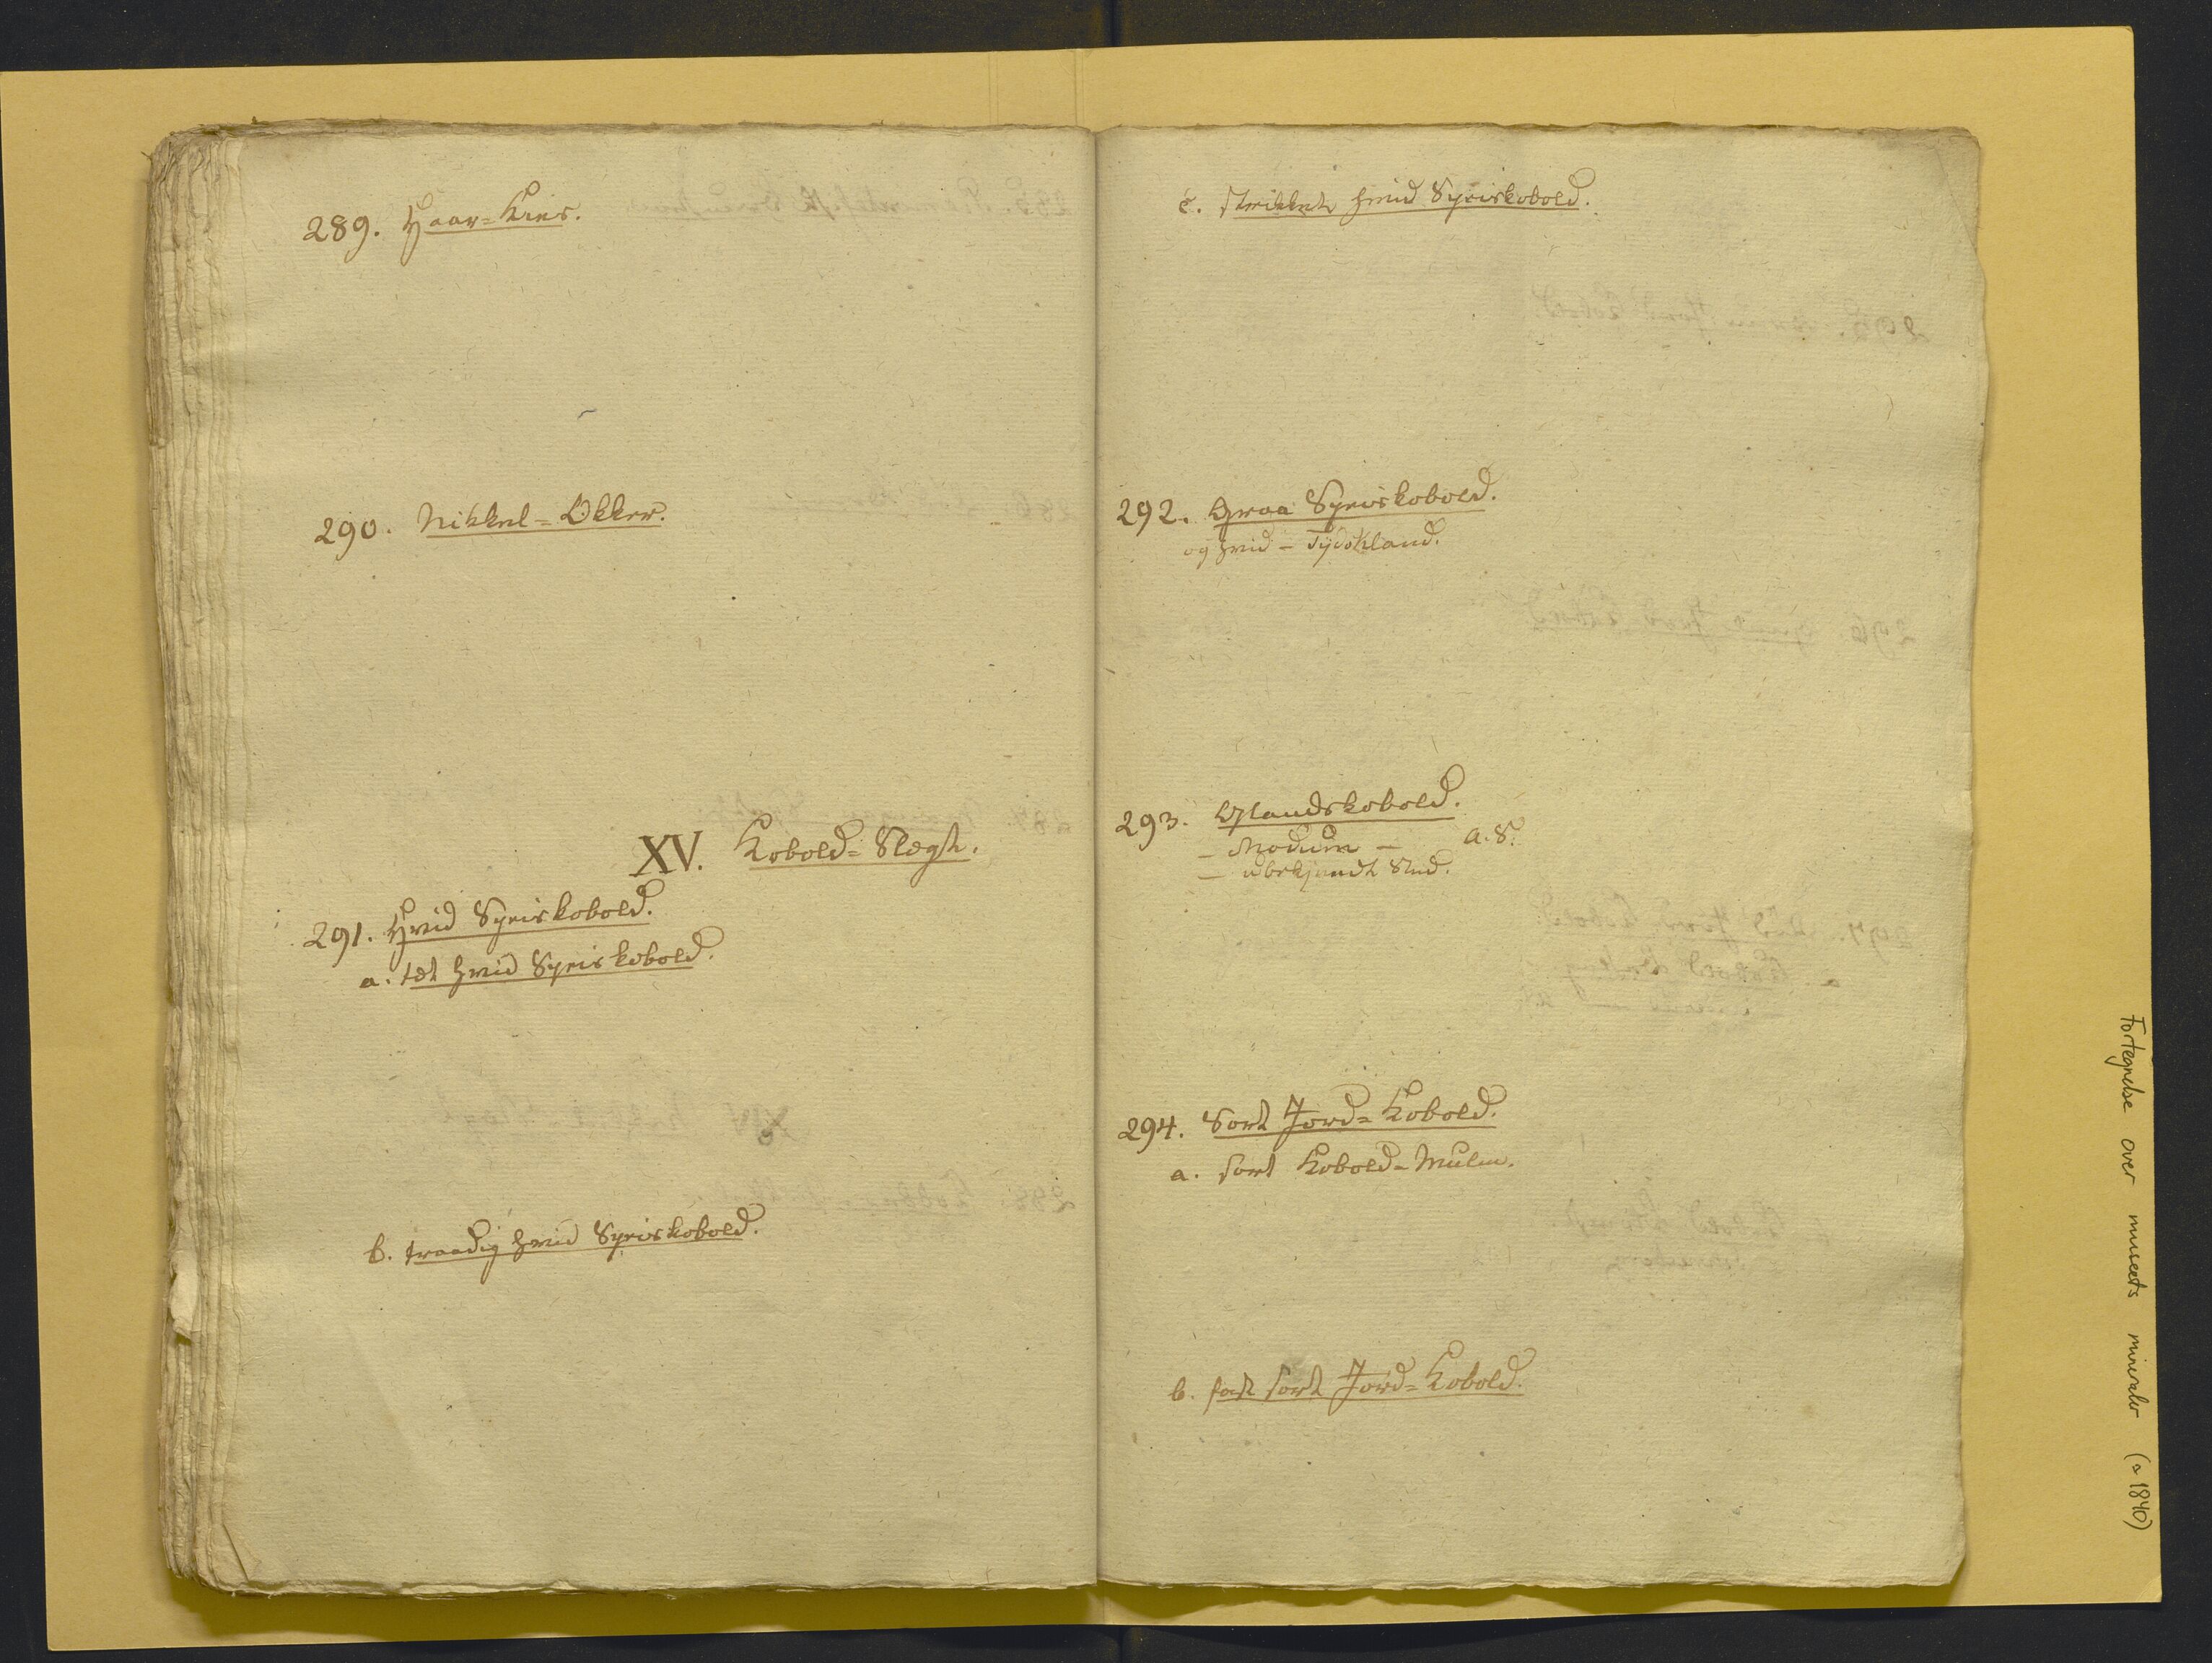 289. Haar-Kies.
290. Nikkel-Okker.
XV. Kobold-Slegt.
291. Hvid Speiskobold.
a. tæt hvid Speiskobold.
b. traadig hvid Speiskobold.
c. strikket hvid Speiskobold.
292. Graa Speiskobold.
og hvid - Tydskland.
293. Glandskobold.
- Modum - a. S.
- ubekjendt Sted.
294. Sort Jord-Kobold.
a. sort Kobold-Mulm.
b. fast sort Jord-Kobold.
Fortegnelse over museets mineraler (~1840)